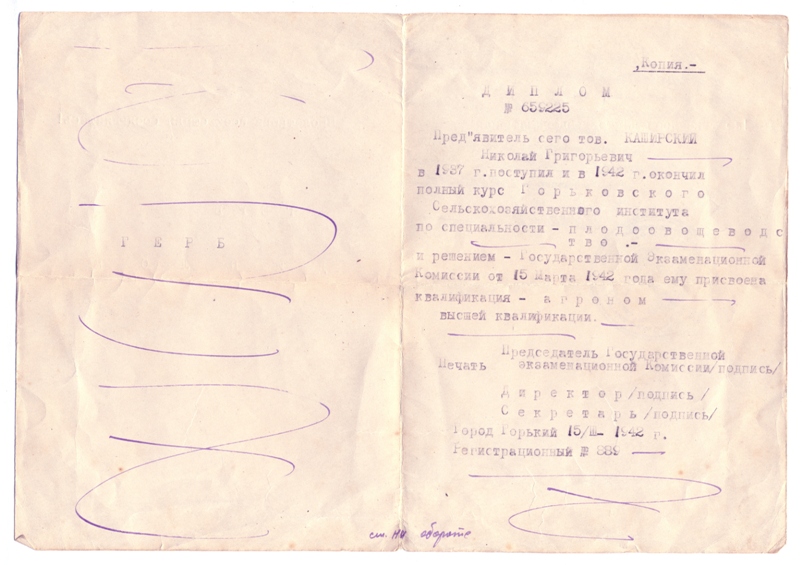 Г Е Р Б
"Копия.-
Д И П Л О М
№ 659225
Пред"явитель сего тов. КАШИРСКИЙ
Николай Григорьевич
в 1937 г.поступил и в 1942 г.окончил
полный курс Г о р ь к о в с к о г о
Сельскохозяйственного института
по специальности - п л о д о о в о щ е в о д с
т в о .-
и решением - Государственной Экзаменационной
Комиссии от 15 Марта 1942 года ему присвоена
квалификация - а г р о н о м
высшей квалификации.
Председатель Государственной
Печать экзаменационной Комиссии/подпись/
Д и р е к т о р /подпись /
С е к р е т а р ь /подпись/
Город Горький 15/Ш- 1942 г.
Регистрационный № 889
см. на обороте